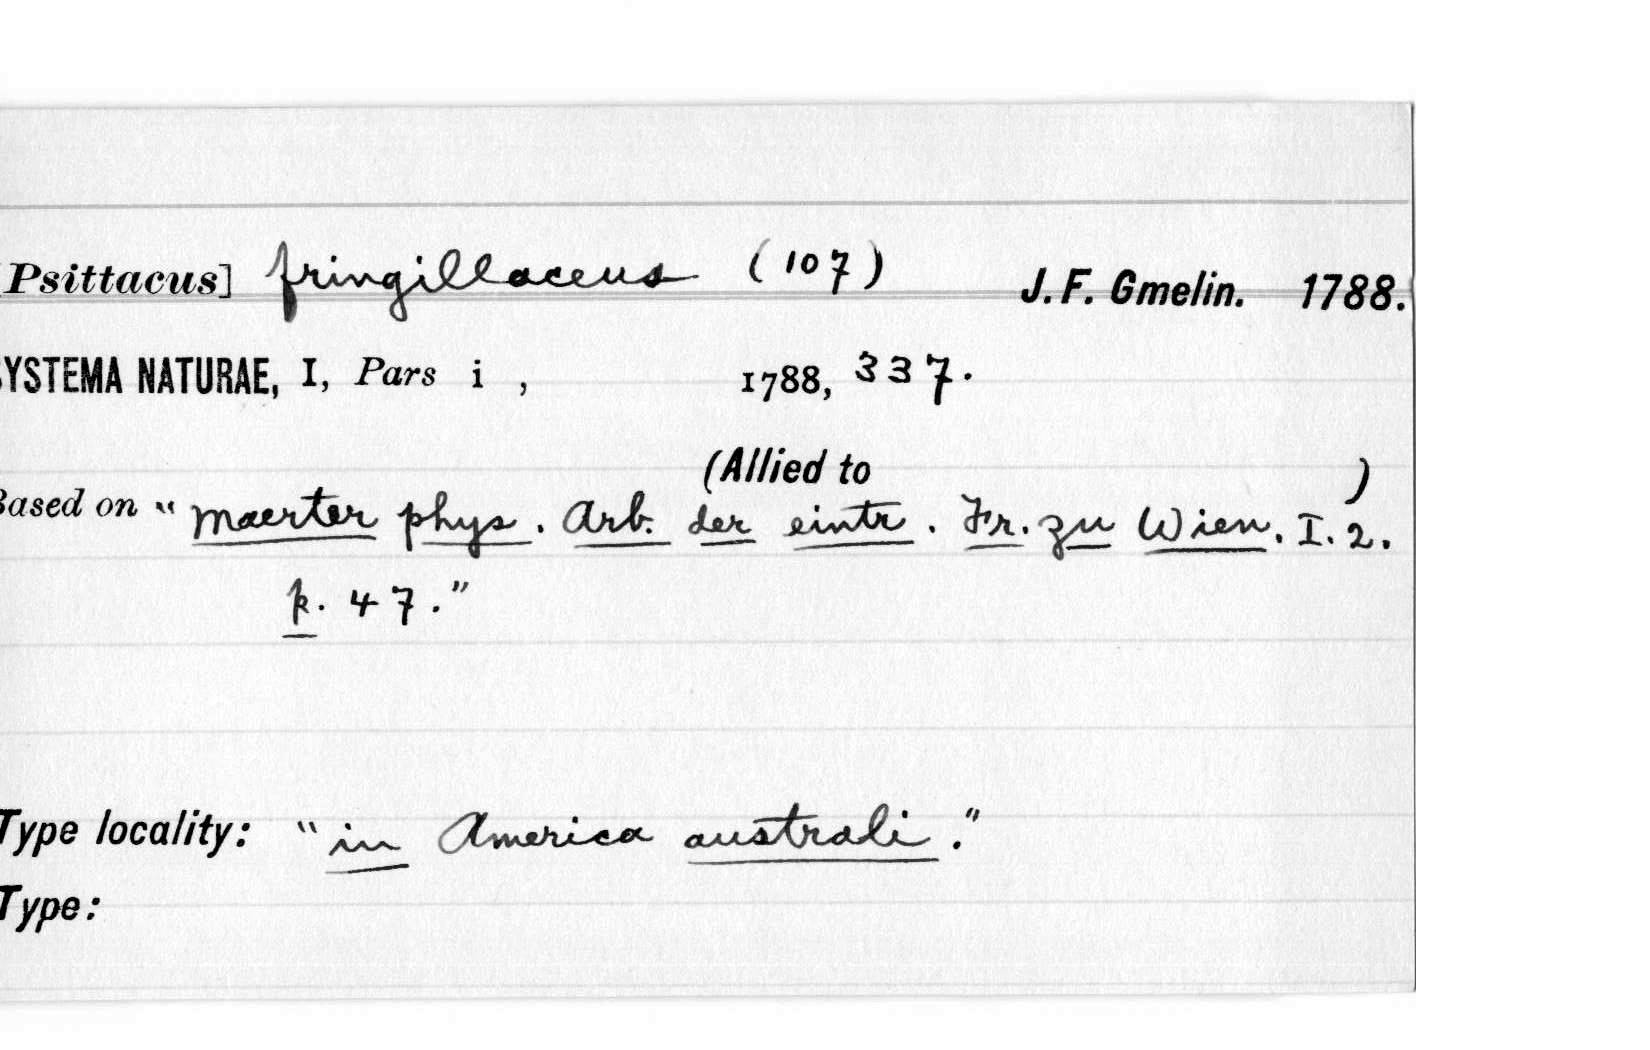 [Psittacus] fringillaceus (107) J. F. Gmelin. 1788.
SYSTEMA NATURAE, I, Pars i , 1788, 337.
(Allied to )
Based on " Maerter phys. Arb. der eintr. Fr. zu Wien. I. 2.
p. 47."
Type locality: "in America australi."
Type: